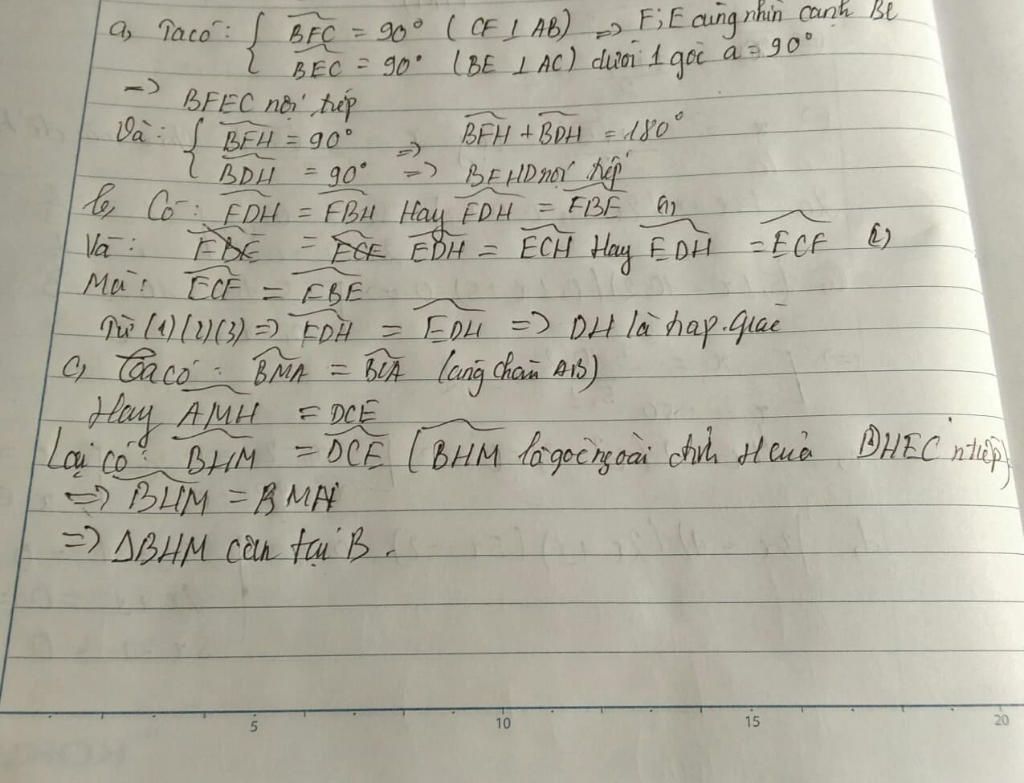 a, Ta có: { BFC = 90° ( CF ⊥ AB) => F; E cùng nhìn cạnh BC
BEC = 90° (BE ⊥ AC) dưới 1 góc a = 90°
=> BFEC nội tiếp
Và: { BFH = 90° => BFH + BDH = 180°
BDH = 90° => BFHD nội tiếp
b, Có: FDH = FBH Hay FDH = FBE (1)
Và: EDH = ECH Hay EDH = ECF (2)
Mà: ECF = FBE
Từ (1)(2)(3) => FDH = EDH => DH là tia p.giác
c, Ta có: BMA = BCA (cùng chắn AB)
Hay AMH = DCE
Lại có: BHM = DCE (BHM là góc ngoài đỉnh H của DHEC n tiếp)
=> BHM = BMH
=> ΔBHM cân tại B.
5 10 15 20